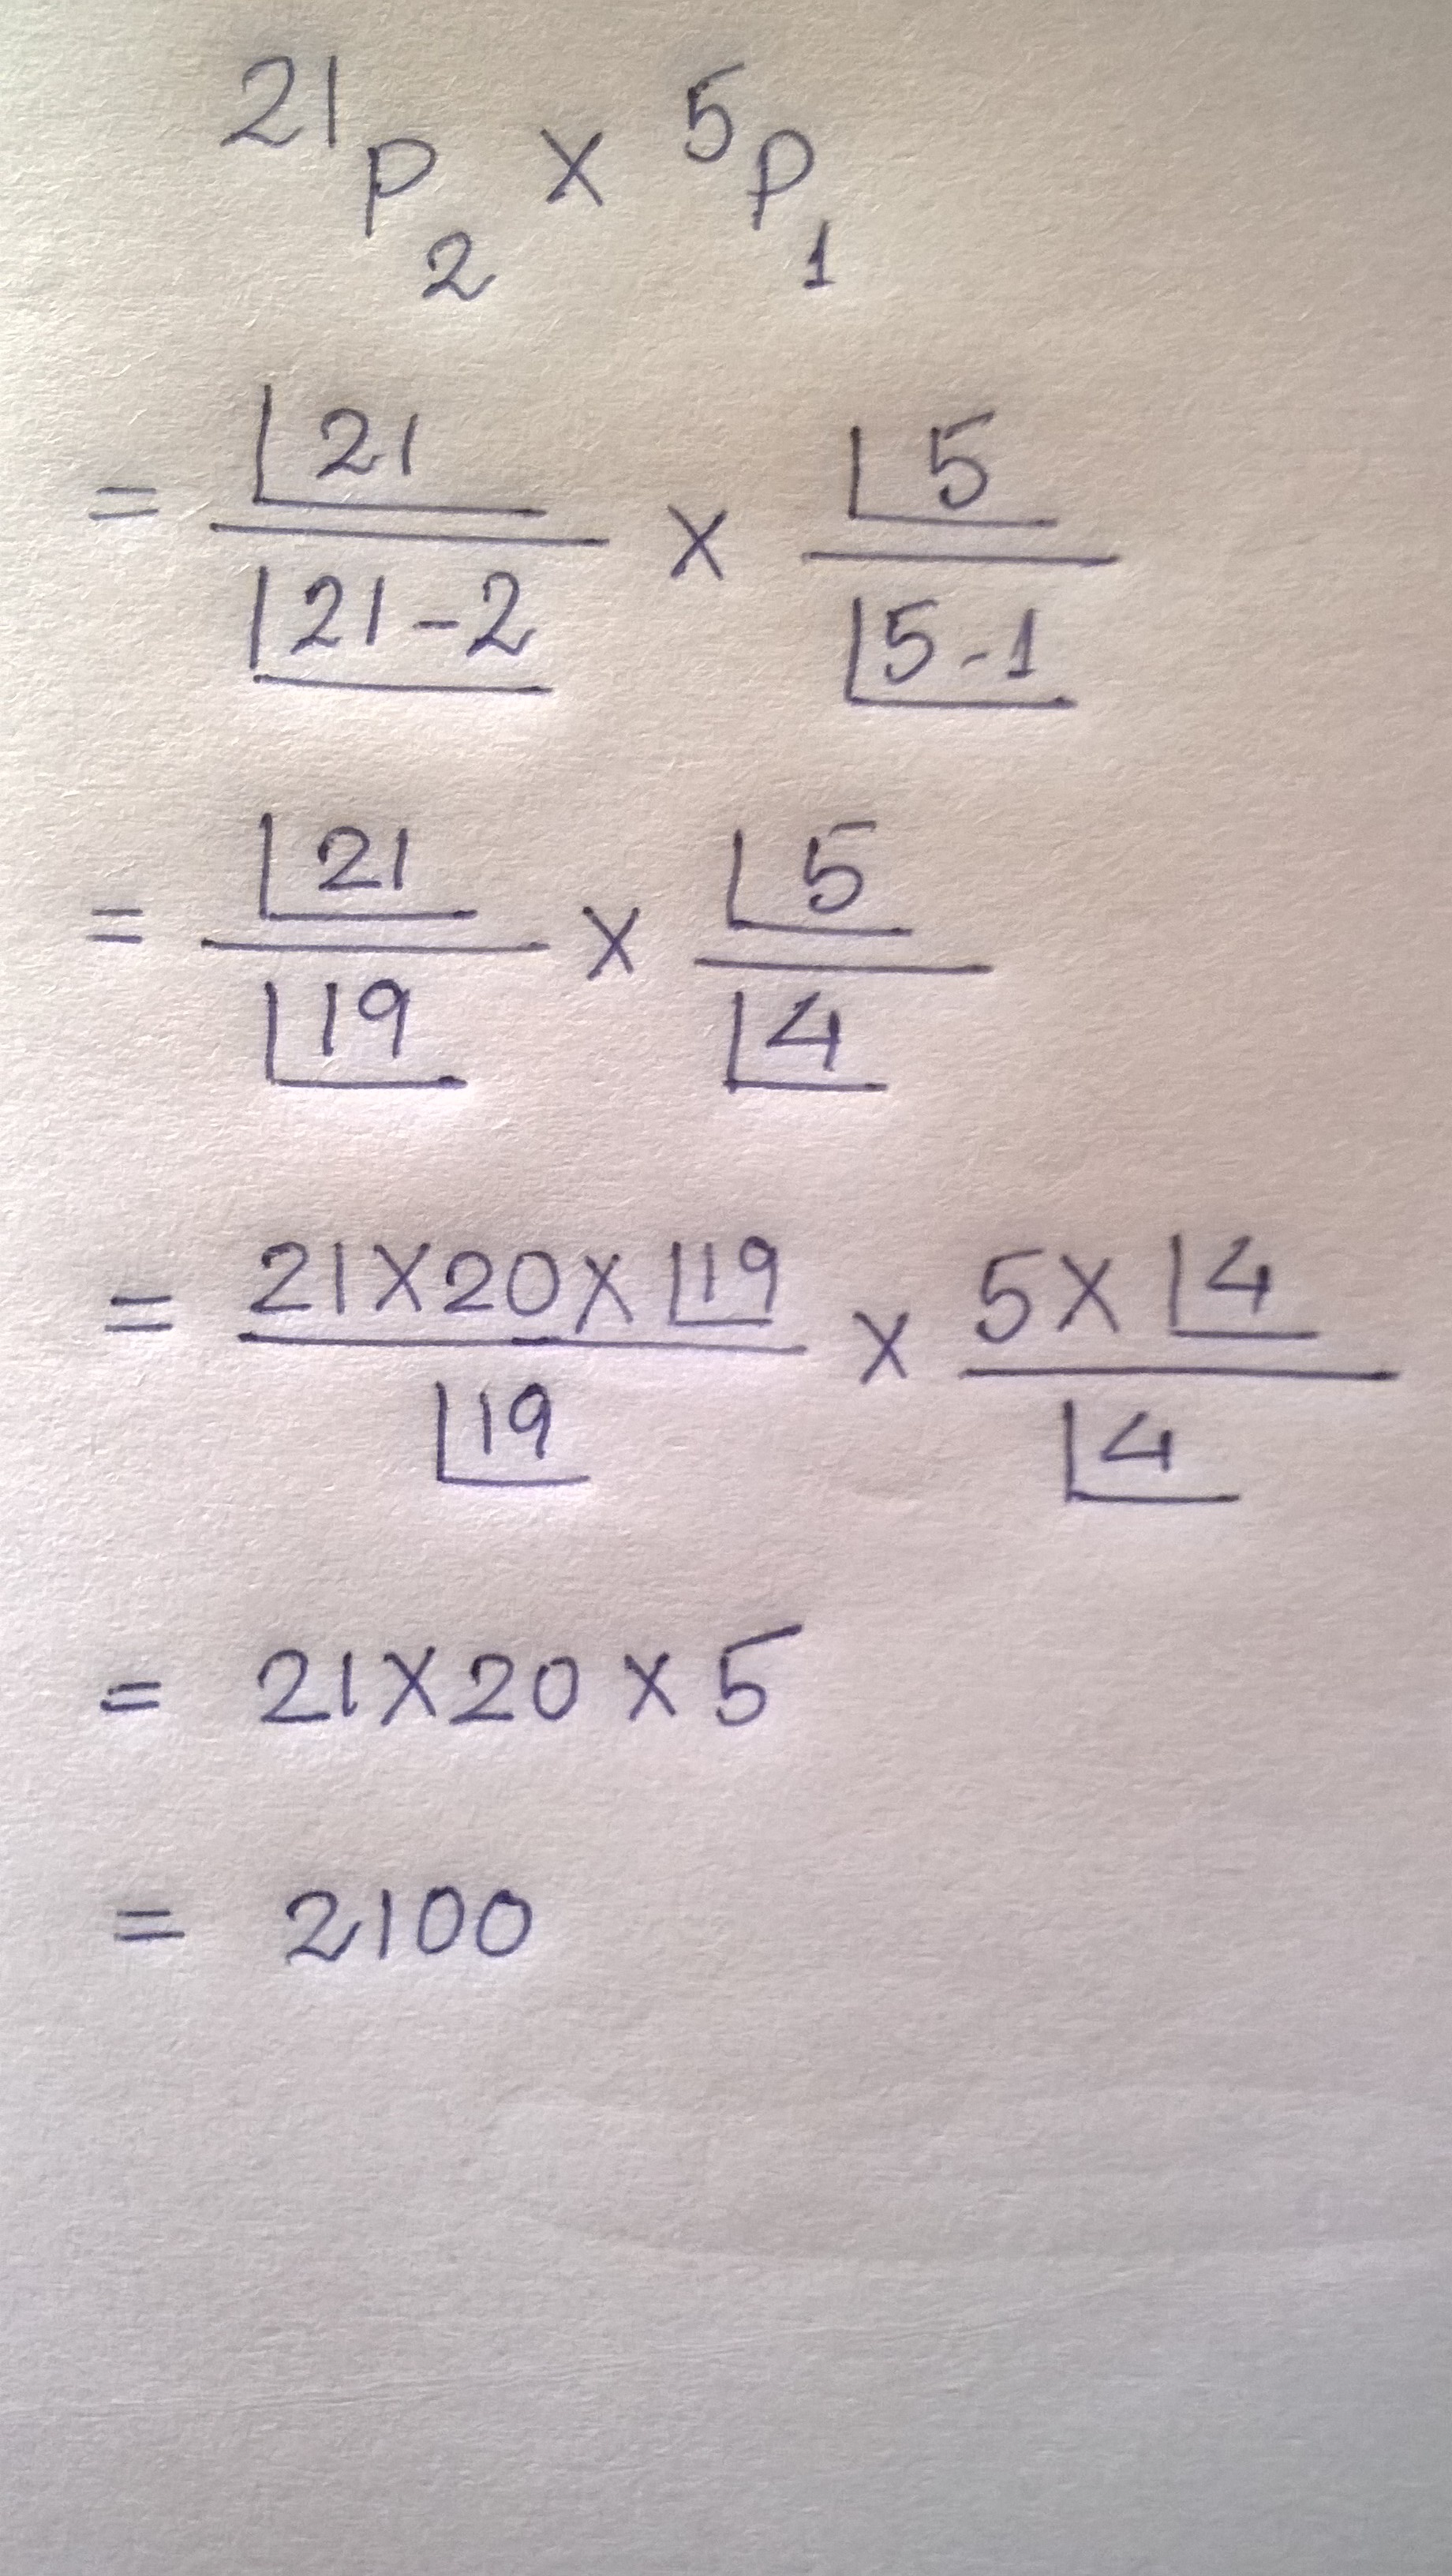 ²¹P₂ × ⁵P₁
= |21 / |21-2 × |5 / |5-1
= |21 / |19 × |5 / |4
= 21×20×|19 / |19 × 5×|4 / |4
= 21×20×5
= 2100